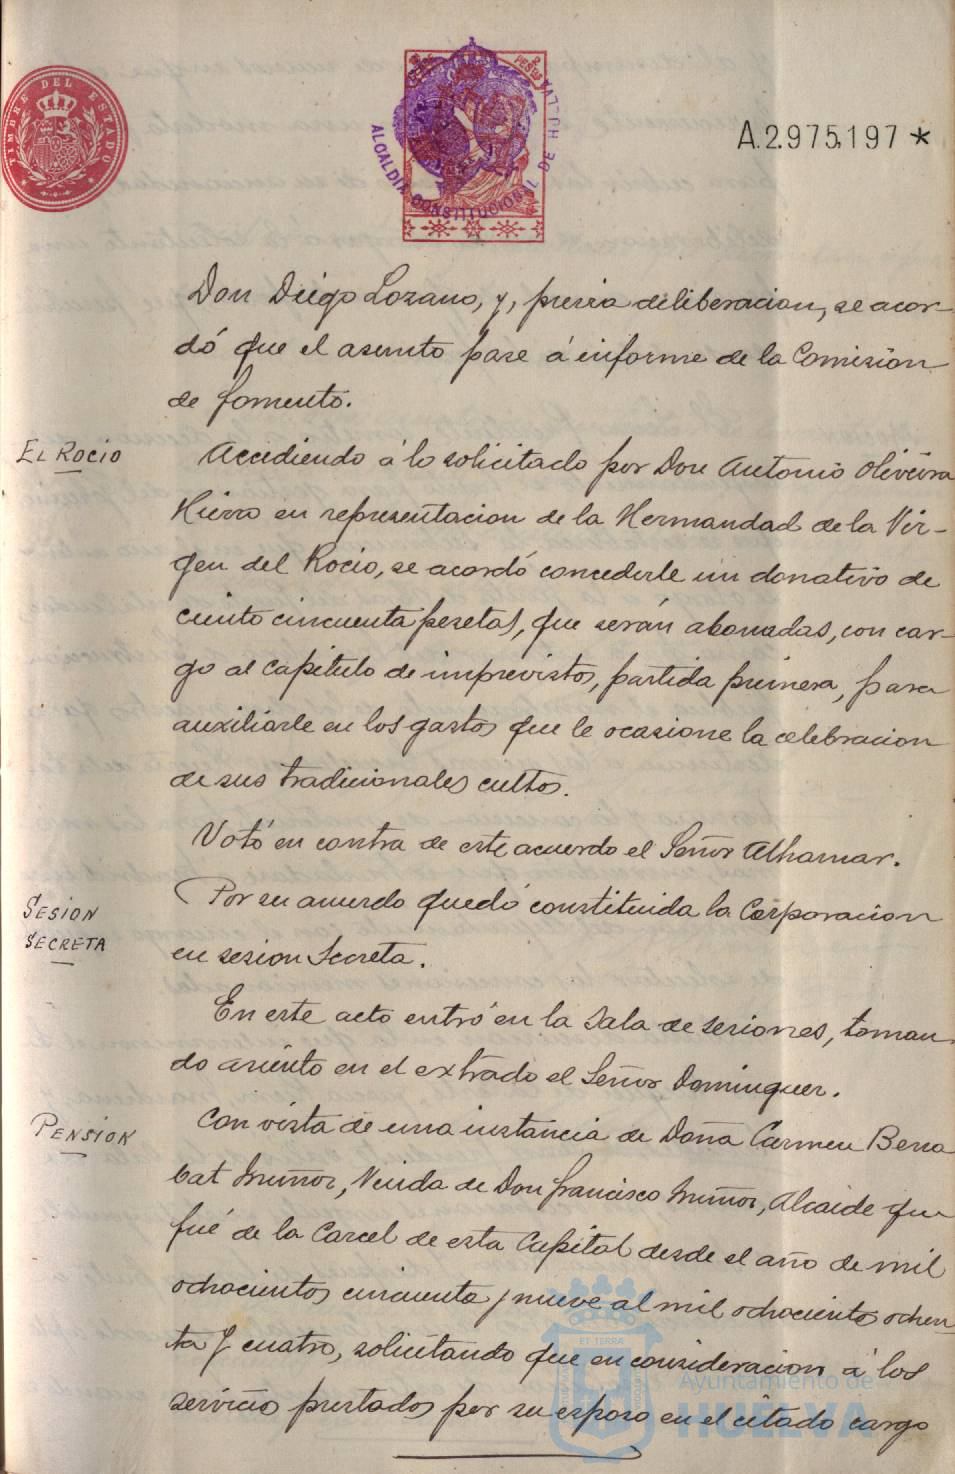 TIMBRE DEL ESTADO
PESETAS
ALCALDÍA CONSTITUCIONAL DE HUELVA
A.2.975,197 *
Don Diego Lozano, y, previa deliberacion, se acor-
dó que el asunto pase á informe de la Comision
de fomento.
EL ROCIO
Accediendo á lo solicitado por Don Antonio Oliveira
Hierro en representacion de la Hermandad de la Vir-
gen del Rocio, se acordó concederle un donativo de
ciento cincuenta pesetas, que serán abonadas, con car-
go al capitulo de imprevistos, partida primera, para
auxiliarle en los gastos que le ocasione la celebracion
de sus tradicionales cultos.
Votó en contra de este acuerdo el Señor Alhamar.
SESION
SECRETA
Por su acuerdo quedó constituida la Corporacion
en sesion Secreta.
En este acto entró en la Sala de sesiones, toman
do asiento en el extrado el Señor Dominguez.
PENSION
Con vista de una instancia de Doña Carmen Bena
bat Muñoz, Viuda de Don Francisco Muñoz, Alcaide que
fué de la Carcel de esta Capital desde el año de mil
ochocientos cincuenta y nueve al mil ochocientos ochen-
ta y cuatro, solicitando que en consideracion á los
servicios prestados por su esposo en el citado cargo
ET TERRÆ
Ayuntamiento de
HUELVA